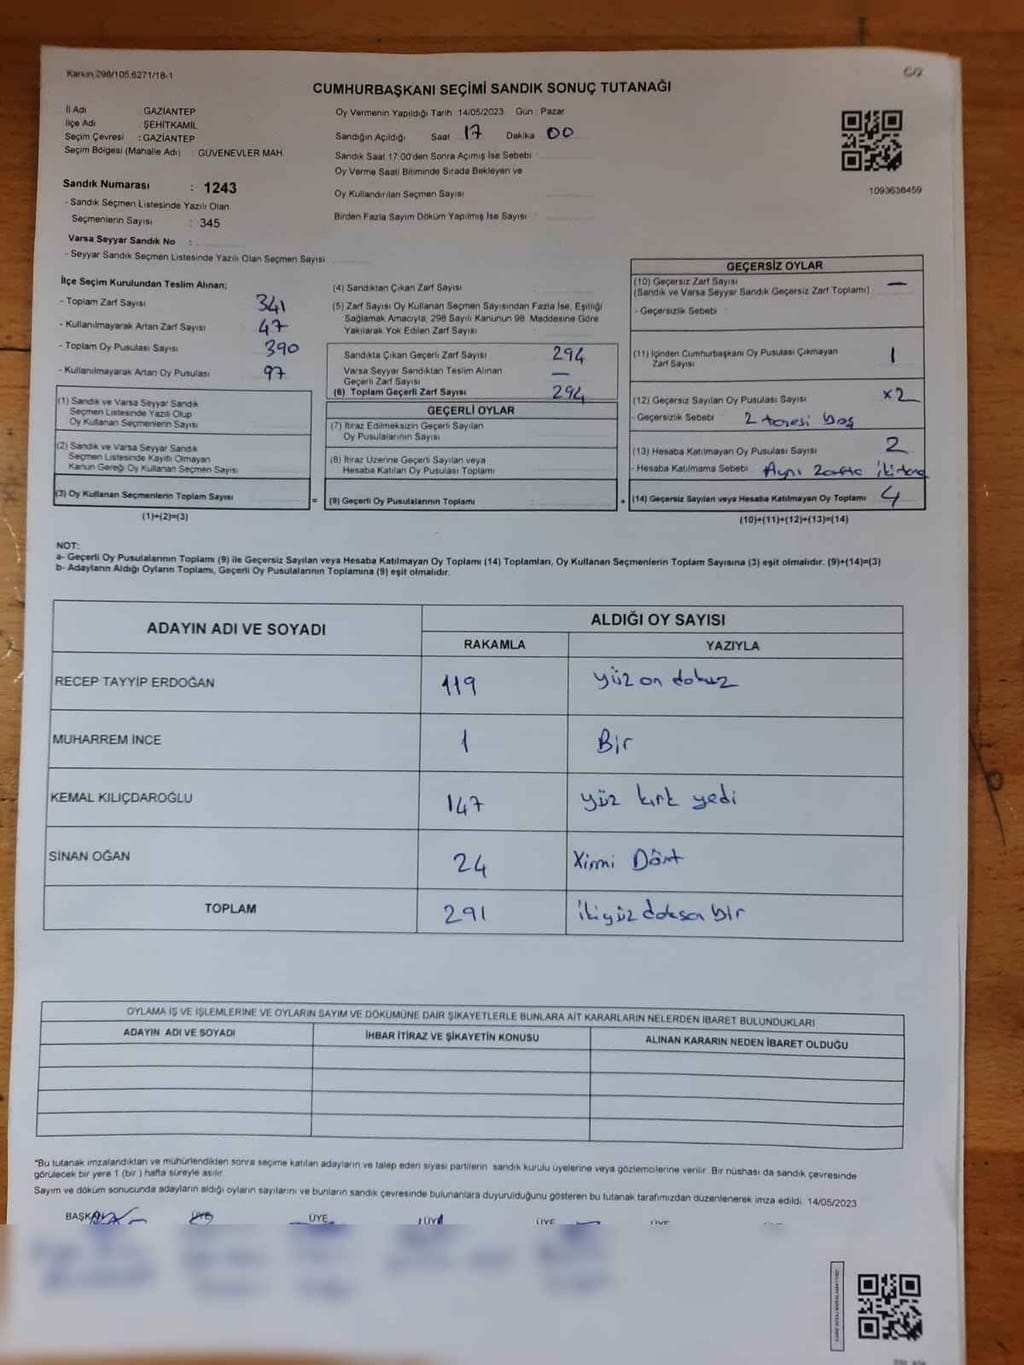 Kanun 298/105,6271/18-1
CUMHURBAŞKANI SEÇİMİ SANDIK SONUÇ TUTANAĞI
İl Adı GAZİANTEP
İlçe Adı : ŞEHİTKAMİL
Seçim Çevresi : GAZİANTEP
Seçim Bölgesi (Mahalle Adı) : GÜVENEVLER MAH.
Sandık Numarası : 1243
- Sandık Seçmen Listesinde Yazılı Olan
Seçmenlerin Sayısı : 345
Varsa Seyyar Sandık No :
- Seyyar Sandık Seçmen Listesinde Yazılı Olan Seçmen Sayısı
Oy Vermenin Yapıldığı Tarih 14/05/2023 Gün : Pazar
Sandığın Açıldığı Saat 17 Dakika 00
Sandık Saat 17:00'den Sonra Açılmış İse Sebebi
Oy Verme Saati Bitiminde Sırada Bekleyen ve
Oy Kullandırılan Seçmen Sayısı
Birden Fazla Sayım Döküm Yapılmış İse Sayısı
1093638459
İlçe Seçim Kurulundan Teslim Alınan;
- Toplam Zarf Sayısı 341
- Kullanılmayarak Artan Zarf Sayısı 47
- Toplam Oy Pusulası Sayısı 390
- Kullanılmayarak Artan Oy Pusulası 97
(1) Sandık ve Varsa Seyyar Sandık
Seçmen Listesinde Yazılı Olup
Oy Kullanan Seçmenlerin Sayısı
(2) Sandık ve Varsa Seyyar Sandık
Seçmen Listesinde Kayıtlı Olmayan
Kanun Gereği Oy Kullanan Seçmen Sayısı
(3) Oy Kullanan Seçmenlerin Toplam Sayısı
(1)+(2)=(3)
(4) Sandıktan Çıkan Zarf Sayısı
(5) Zarf Sayısı Oy Kullanan Seçmen Sayısından Fazla İse, Eşitliği
Sağlamak Amacıyla, 298 Sayılı Kanunun 98. Maddesine Göre
Yakılarak Yok Edilen Zarf Sayısı
Sandıkta Çıkan Geçerli Zarf Sayısı 294
Varsa Seyyar Sandıktan Teslim Alınan
Geçerli Zarf Sayısı —
(6) Toplam Geçerli Zarf Sayısı 294
GEÇERLİ OYLAR
(7) İtiraz Edilmeksizin Geçerli Sayılan
Oy Pusulalarının Sayısı
(8) İtiraz Üzerine Geçerli Sayılan veya
Hesaba Katılan Oy Pusulası Toplamı
= (9) Geçerli Oy Pusulalarının Toplamı +
GEÇERSİZ OYLAR
(10) Geçersiz Zarf Sayısı —
(Sandık ve Varsa Seyyar Sandık Geçersiz Zarf Toplamı)
- Geçersizlik Sebebi :
(11) İçinden Cumhurbaşkanı Oy Pusulası Çıkmayan
Zarf Sayısı 1
(12) Geçersiz Sayılan Oy Pusulası Sayısı x2
- Geçersizlik Sebebi 2 tanesi boş
(13) Hesaba Katılmayan Oy Pusulası Sayısı 2
- Hesaba Katılmama Sebebi Aynı zarfta iki tane
(14) Geçersiz Sayılan veya Hesaba Katılmayan Oy Toplamı 4
(10)+(11)+(12)+(13)=(14)
NOT:
a- Geçerli Oy Pusulalarının Toplamı (9) ile Geçersiz Sayılan veya Hesaba Katılmayan Oy Toplamı (14) Toplamları, Oy Kullanan Seçmenlerin Toplam Sayısına (3) eşit olmalıdır. (9)+(14)=(3)
b- Adayların Aldığı Oyların Toplamı, Geçerli Oy Pusulalarının Toplamına (9) eşit olmalıdır.
ADAYIN ADI VE SOYADI ALDIĞI OY SAYISI
RAKAMLA YAZIYLA
RECEP TAYYİP ERDOĞAN 119 yüz on dokuz
MUHARREM İNCE 1 Bir
KEMAL KILIÇDAROĞLU 147 yüz kırk yedi
SİNAN OĞAN 24 Yirmi Dört
TOPLAM 291 İkiyüz doksan bir
OYLAMA İŞ VE İŞLEMLERİNE VE OYLARIN SAYIM VE DÖKÜMÜNE DAİR ŞİKAYETLERLE BUNLARA AİT KARARLARIN NELERDEN İBARET BULUNDUKLARI
ADAYIN ADI VE SOYADI İHBAR İTİRAZ VE ŞİKAYETİN KONUSU ALINAN KARARIN NEDEN İBARET OLDUĞU
*Bu tutanak imzalandıktan ve mühürlendikten sonra seçime katılan adayların ve talep eden siyasi partilerin sandık kurulu üyelerine veya gözlemcilerine verilir. Bir nüshası da sandık çevresinde
görülecek bir yere 1 (bir) hafta süreyle asılır.
Sayım ve döküm sonucunda adayların aldığı oyların sayılarını ve bunların sandık çevresinde bulunanlara duyurulduğunu gösteren bu tutanak tarafımızdan düzenlenerek imza edildi. 14/05/2023
BAŞKAN ÜYE ÜYE ÜYE ÜYE ÜYE